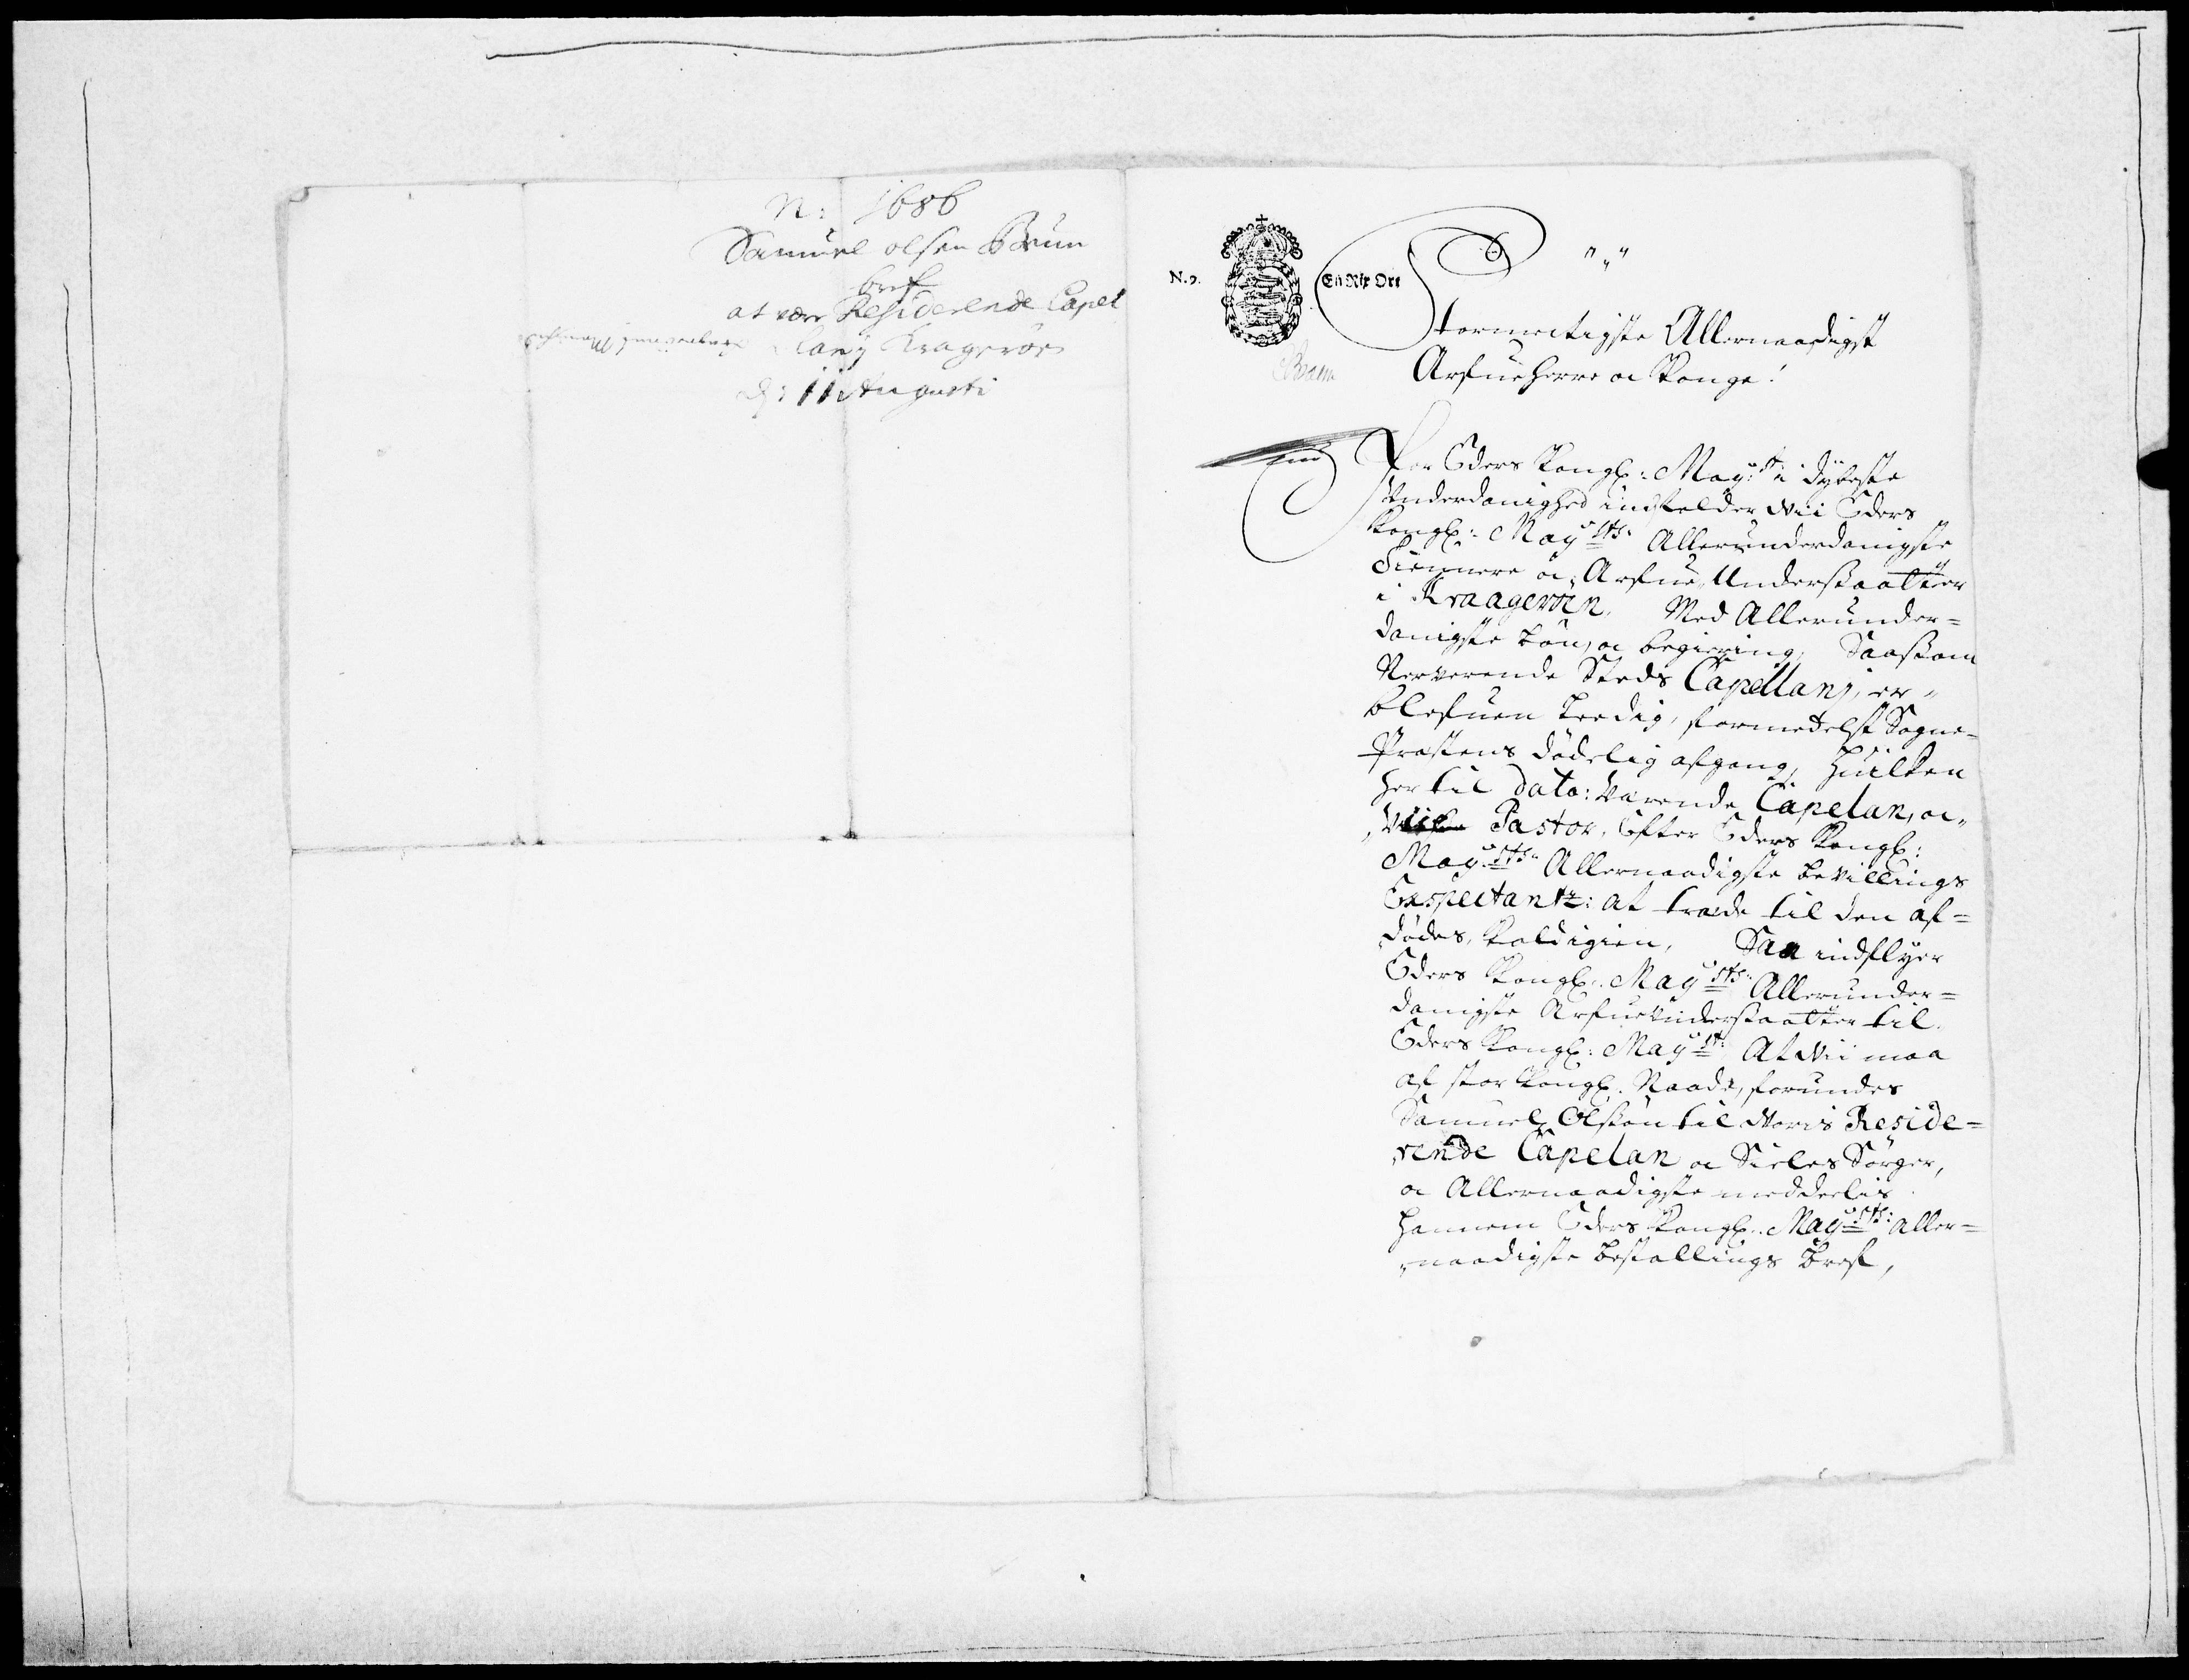 N: 1686
Samuel olsen Brun
bref
at være Residerende Capel
lanj Kragerøe
d: 11 Augusti
N.9.
En Rix Ort
Stormectigste Allernaadigst
Arfueherre oc Konge!
For Eders Kongl: May:st i dÿbeste
Underdanighed indfalder Wii Eders
Kongl: Maysts: Allerunderdanigste
Tiennere oc Arfue, Undersaatter
i Kraagerøen, Med Allerunder=
danigste bøn, oc begiering, Saasom
Nerverende Steds Capellanj, er
blefuen leedig, formedelst Sogne-
Præstens dødelig afgang, Huilken
her til dato: Værende Capelan, oc
Vice Pastor, Efter Eders Kongl:
May:sts Allernaadigste bevillings
Exspectantz: at træde til den af=
dødes, Kaldigien, Saa indflyer
Eders Kongl: Maysts: Allerunder=
danigste Arfueundersaatter til
Eders Kongl: Mayst: At Wii maa
af stor Kongl: Naade, forundes
Samuel Olsøn til Woris Reside=
rende Capelan oc Sieles Sørger,
oc Allernaadigste meddeelis
hannem Eders Kongl: Maysts: aller=
naadigste bestallings bref,